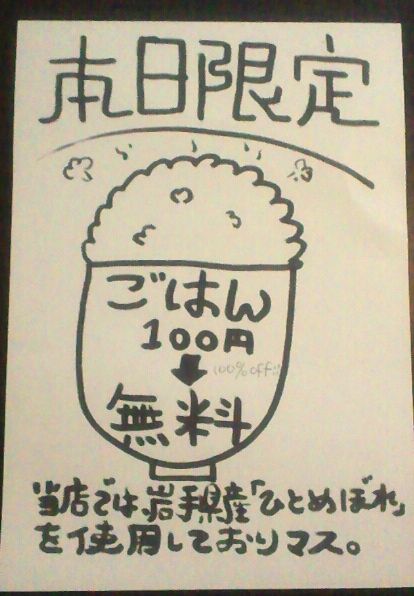 本日限定
ごはん
100円
100%off!!
無料
当店では岩手県産「ひとめぼれ」
を使用しておりマス。